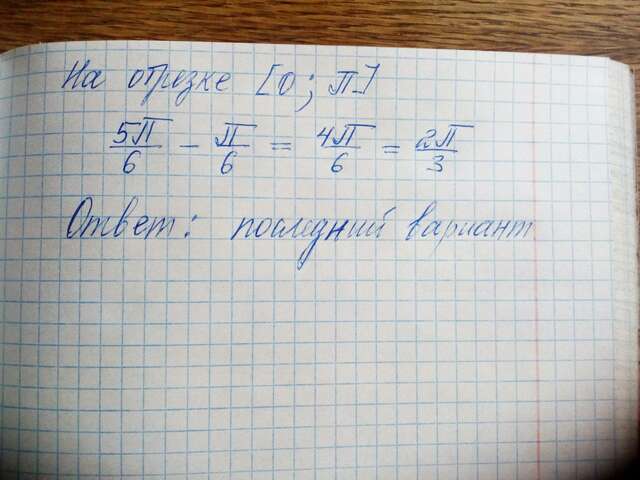 На отрезке [0; П]
5П/6 - П/6 = 4П/6 = 2П/3
Ответ: последний вариант